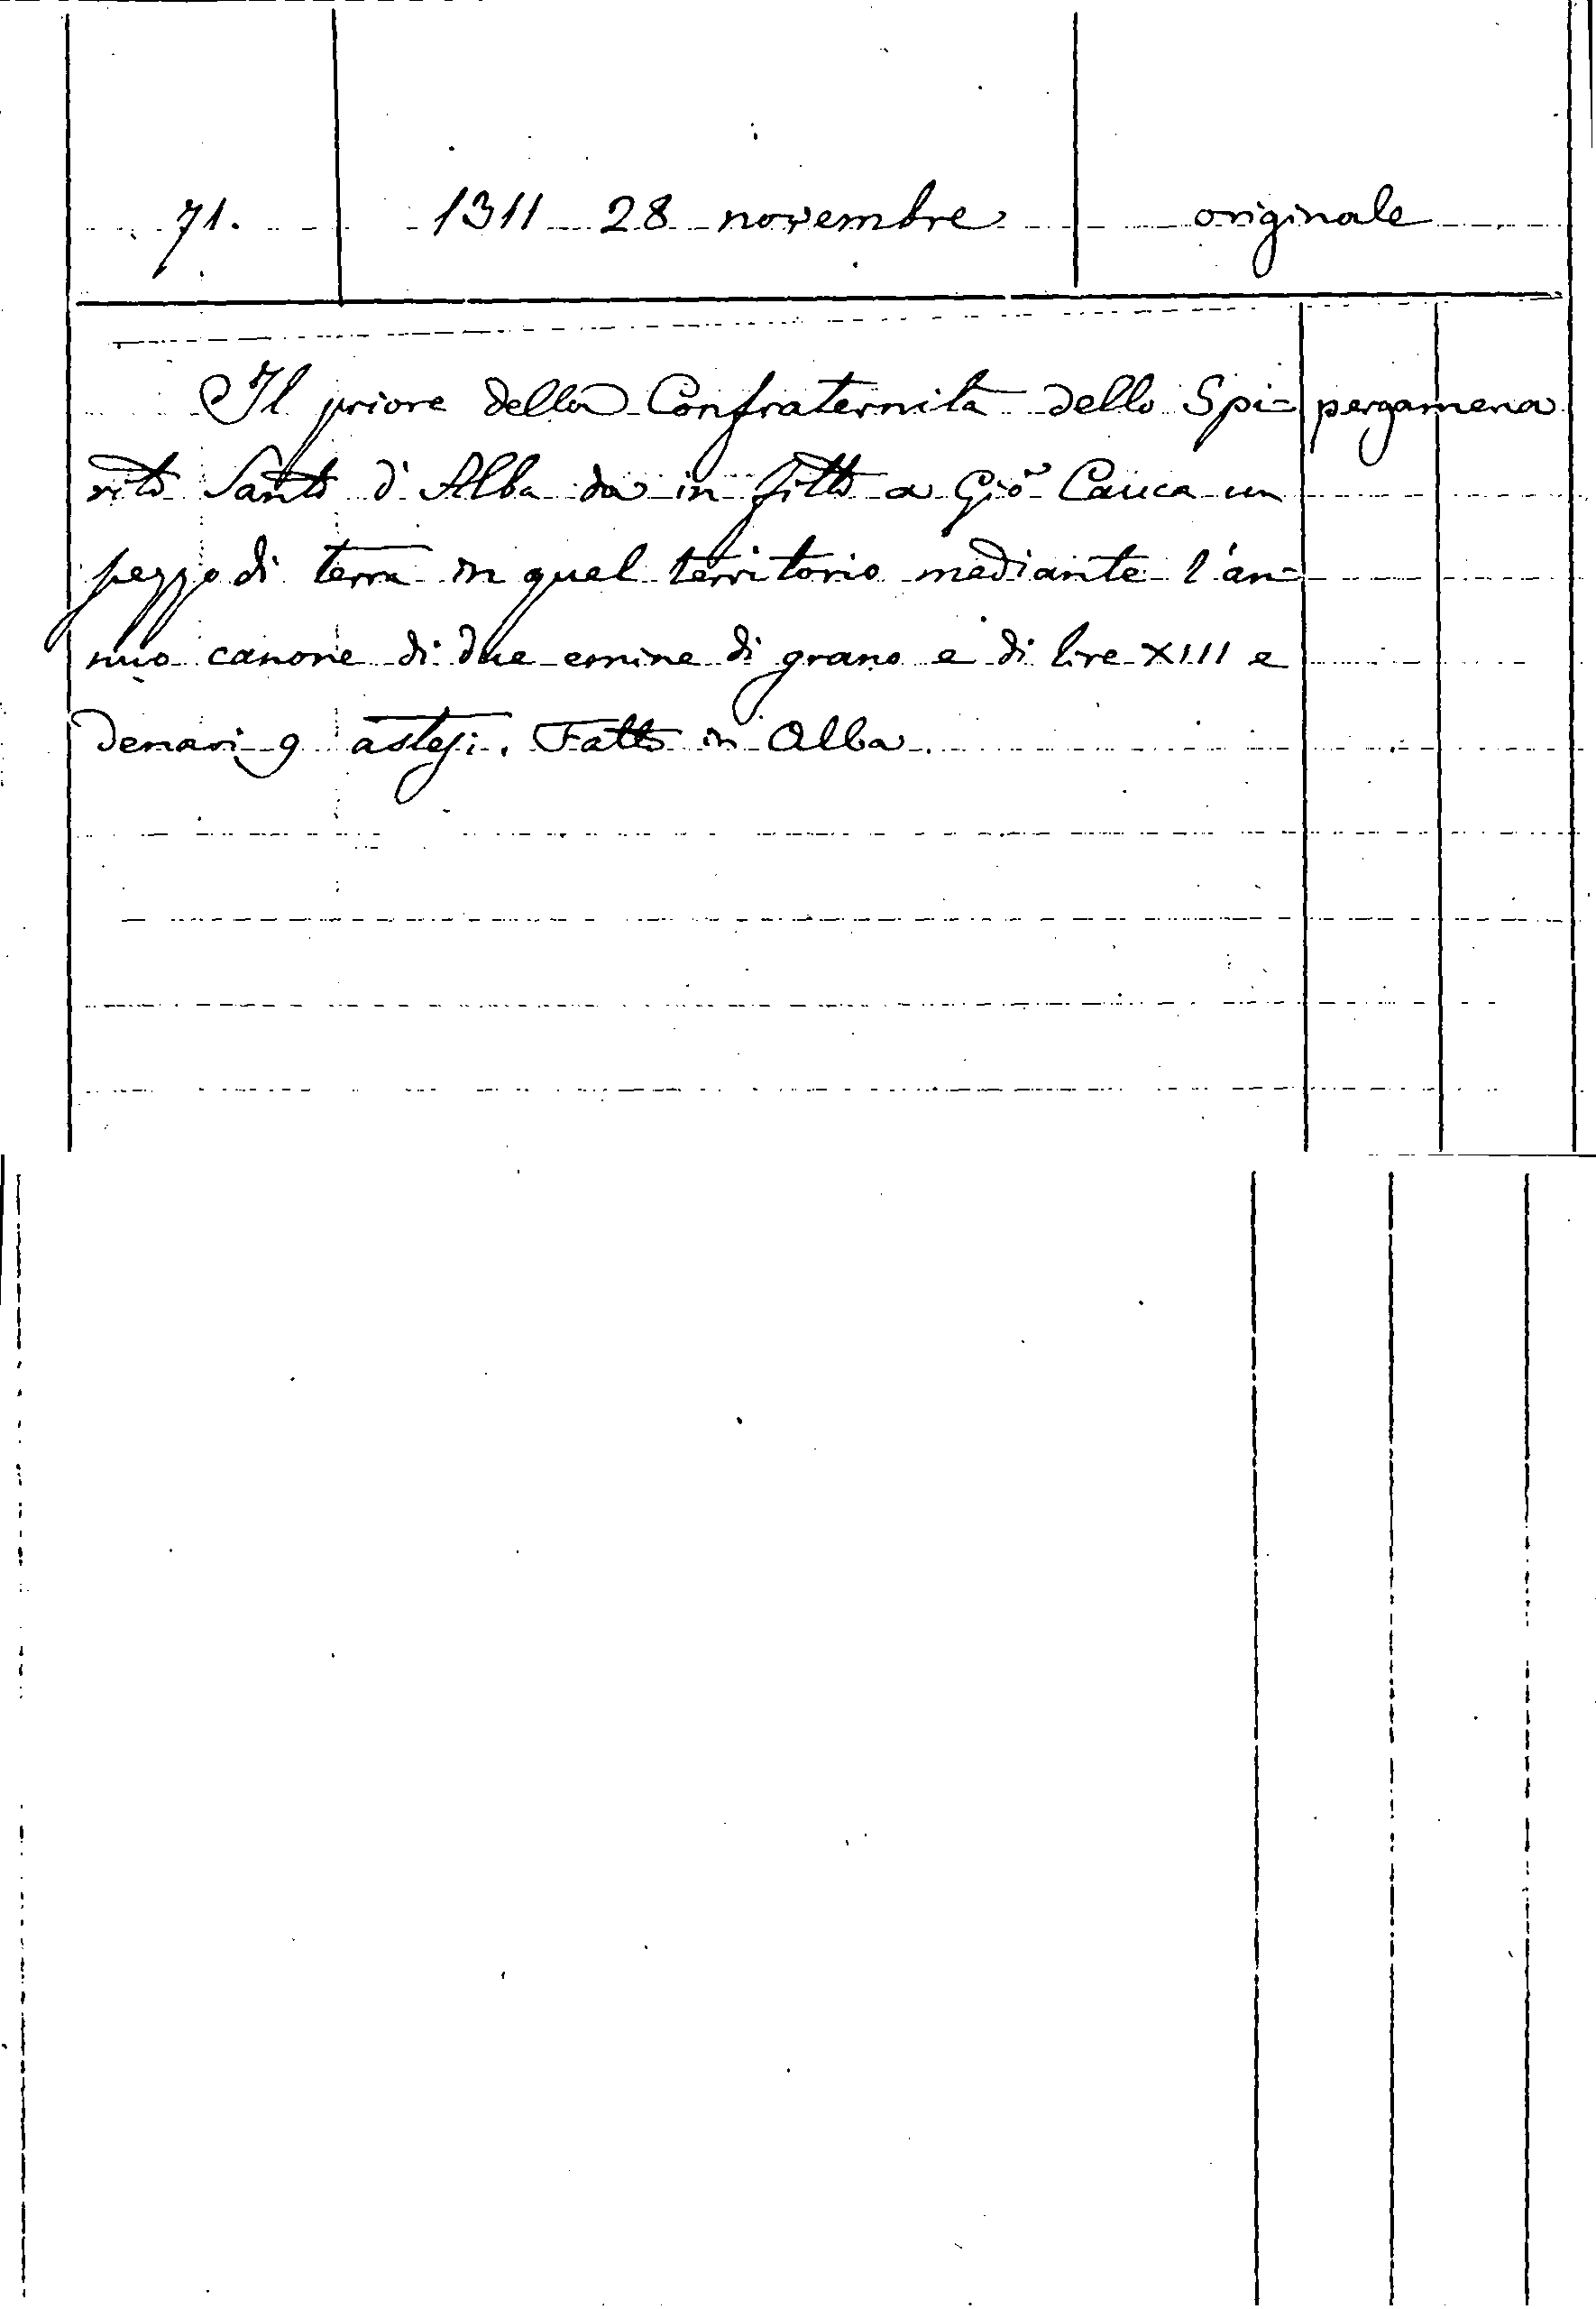 71. 1311 28 novembre originale
Il priore della Confraternita dello Spi= pergamena
rito Santo d'Alba da in fitto a Giō Cauca un
pezzo di terra in quel territorio mediante l'an=
nuo canone di due emine di grano e di lire XIII e
denari 9 astesi. Fatto in Alba.